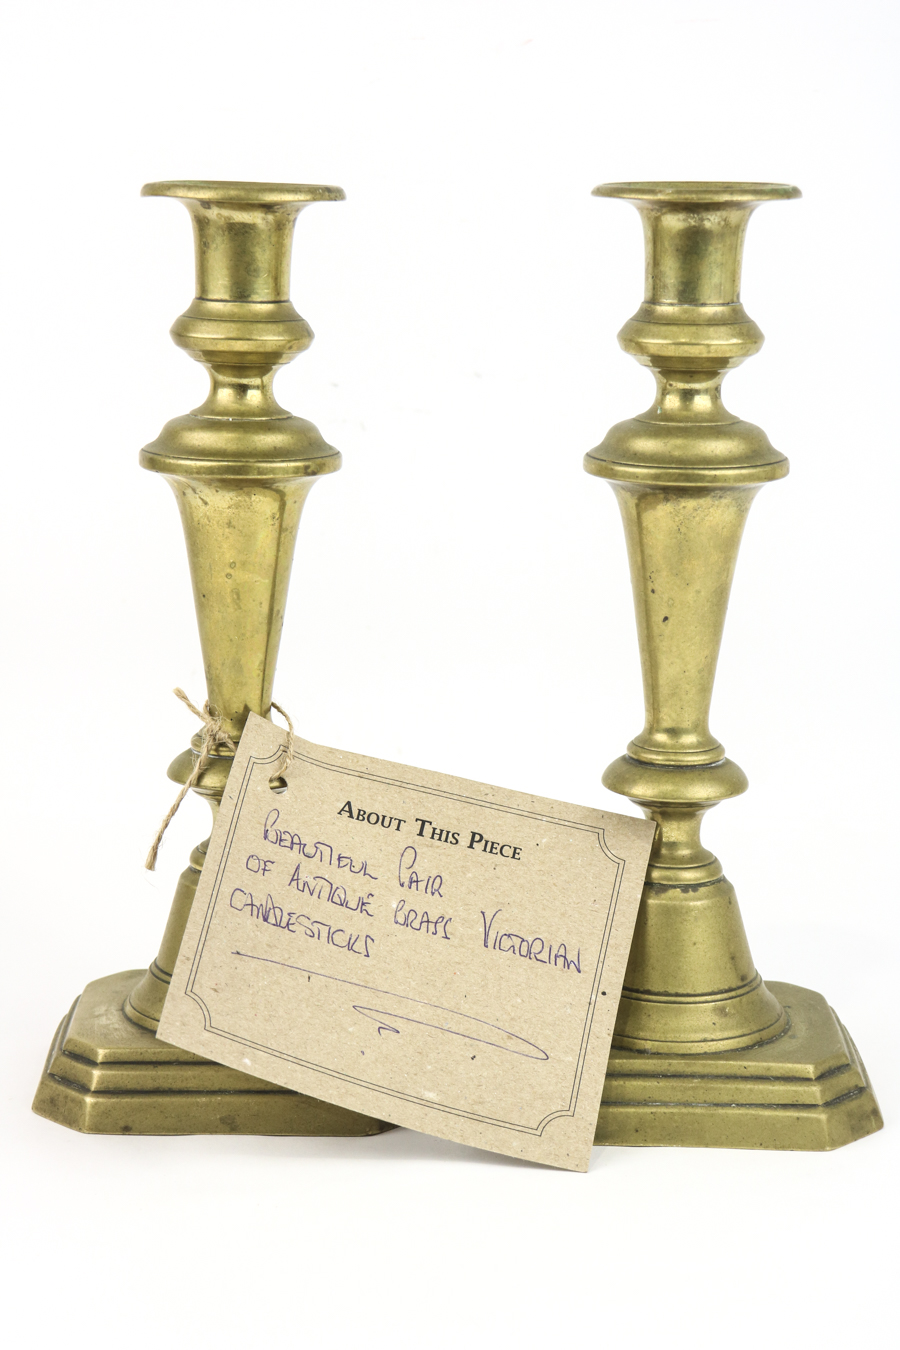 ABOUT THIS PIECE
BEAUTIFUL PAIR
OF ANTIQUE BRASS VICTORIAN
CANDLESTICKS